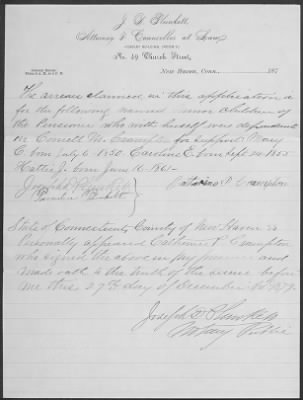 J. D. Plunkett,
Attorney & Counsellor at Law,
No. 49 Church Street,
New Haven, Conn., 187
The arrears claimed in this application is
for the following named minor children of
the Pensioner who with herself were dependent
on Cornell M. Crampton for support, Mary
C. born July 6 1850 Caroline E. born Sept 24 1855
Hattie J. born June 16 1861-
Joseph D Plunkett
Plunkett
Catherine P. Crampton
State of Connecticut, County of New Haven ss
Personally appeared Catherine P. Crampton
who signed the above in my presence and
made oath to the truth of the same before
me this 27th day of December AD 1879.
Joseph D Plunkett
Notary Public